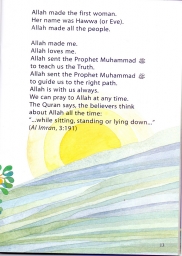 Allah made the first woman.
Her name was Hawwa (or Eve).
Allah made all the people.
Allah made me.
Allah loves me.
Allah sent the Prophet Muhammad ﷺ
to teach us the Truth.
Allah sent the Prophet Muhammad ﷺ
to guide us to the right path.
Allah is with us always.
We can pray to Allah at any time.
The Quran says, the believers think
about Allah all the time:
"...while sitting, standing or lying down..."
(Al Imran, 3:191)